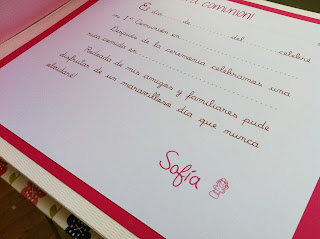 COMUNIÓN!
El día ........ de ........ del ........ celebré
mi 1ª Comunión en ........
Después de la ceremonia celebramos una
rica comida en ........
Rodeada de mis amigos y familiares pude
disfrutar de un maravilloso día que nunca
olvidaré!
Sofía